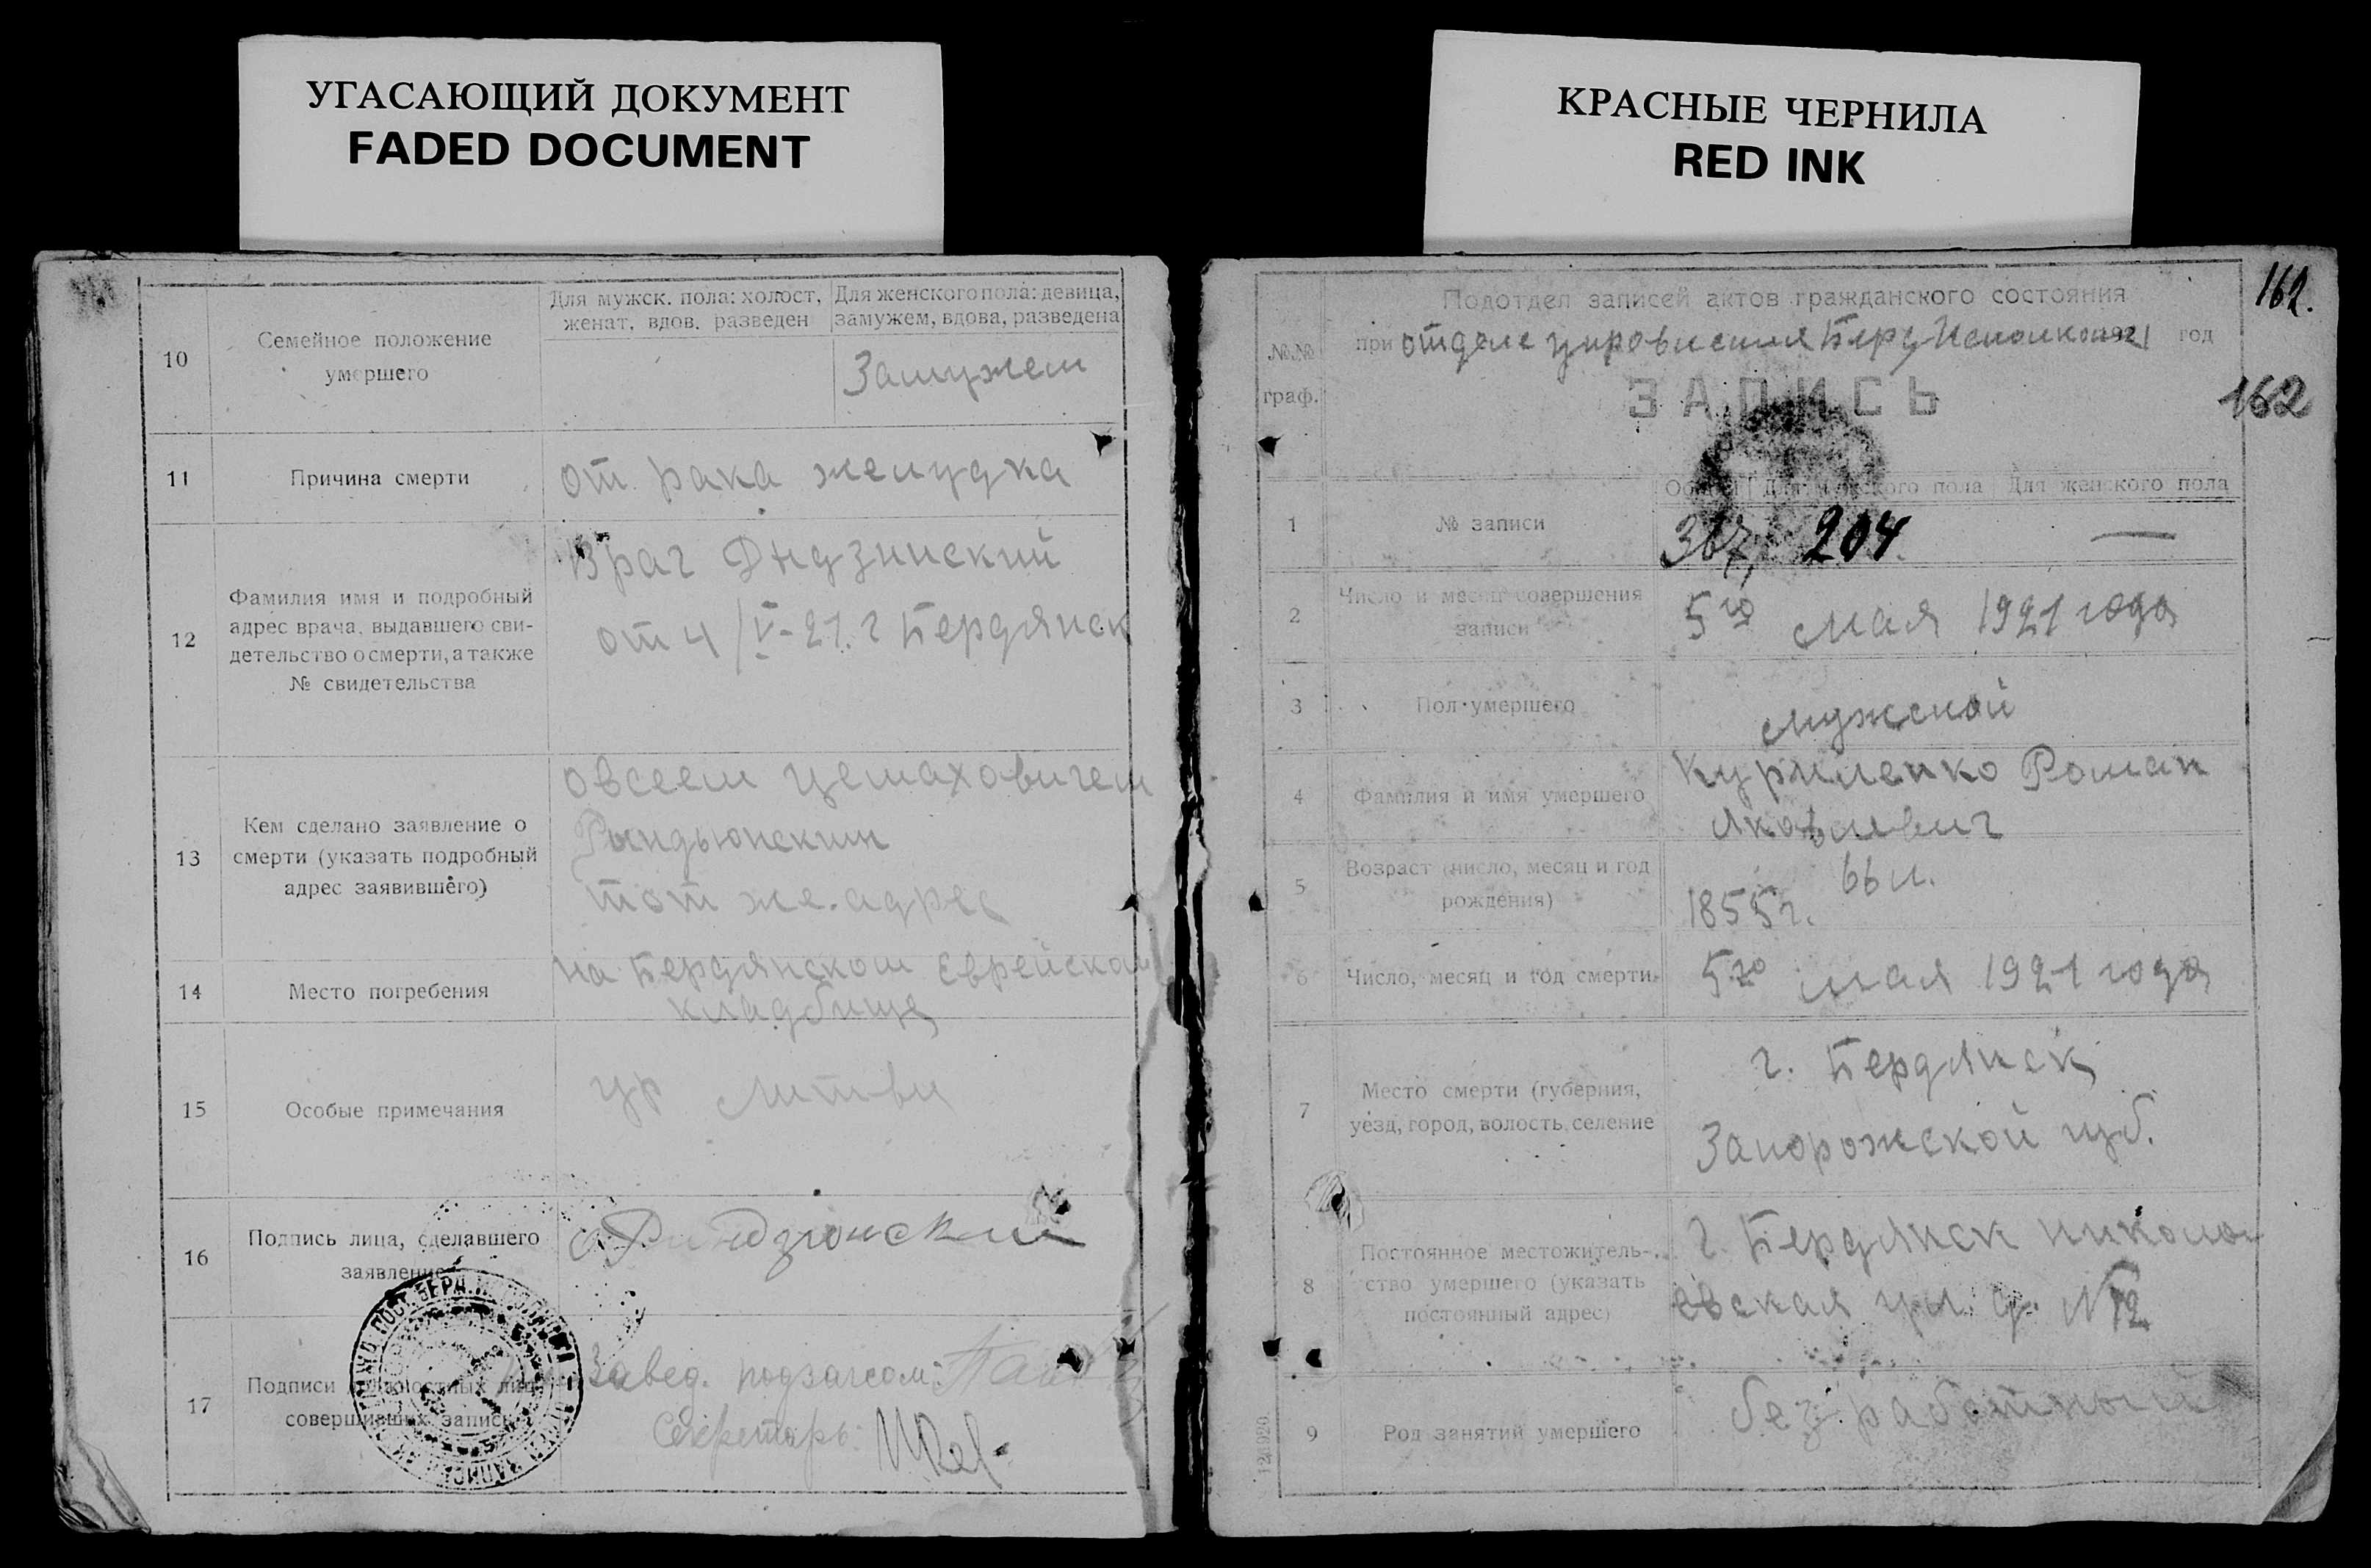 УГАСАЮЩИЙ ДОКУМЕНТ
FADED DOCUMENT
КРАСНЫЕ ЧЕРНИЛА
RED INK
10
Семейное положение
умершего
Для мужск. пола: холост,
женат, вдов. разведен
Для женского пола: девица,
замужем, вдова, разведена
Замужем
11
Причина смерти
от рака желудка
12
Фамилия имя и подробный
адрес врача, выдавшего сви-
детельство о смерти, а также
№ свидетельства
Врач
от 4/V-21. г Бердянск
13
Кем сделано заявление о
смерти (указать подробный
адрес заявившего)
овсеем цемаховичем
тот же адрес
14
Место погребения
на Бердянском Еврейском
кладбище
15
Особые примечания
ур Литвы
16
Подпись лица, сделавшего
заявление
17
Подписи должностных лиц
совершивших запись
Завед. подзагсом
Секретарь
162.
162
№№
граф.
Подотдел записей актов гражданского состояния
при отделе управления Берд Исполкома 1921 год
ЗАПИСЬ
1
№ записи
Общий
Для мужского пола
Для женского пола
367,
204
—
2
Число и месяц совершения
записи
5го мая 1921 года
3
Пол умершего
мужской
4
Фамилия и имя умершего
Куриленко Роман
Яковлевич
5
Возраст (число, месяц и год
рождения)
66 л.
1855 г.
6
Число, месяц и год смерти
5го мая 1921 года
7
Место смерти (губерния,
уезд, город, волость, селение
г. Бердянск
Запорожской губ.
8
Постоянное местожитель-
ство умершего (указать
постоянный адрес)
г. Бердянск Никола
евская ул. д. №
9
Род занятий умершего
безработный
12/1920